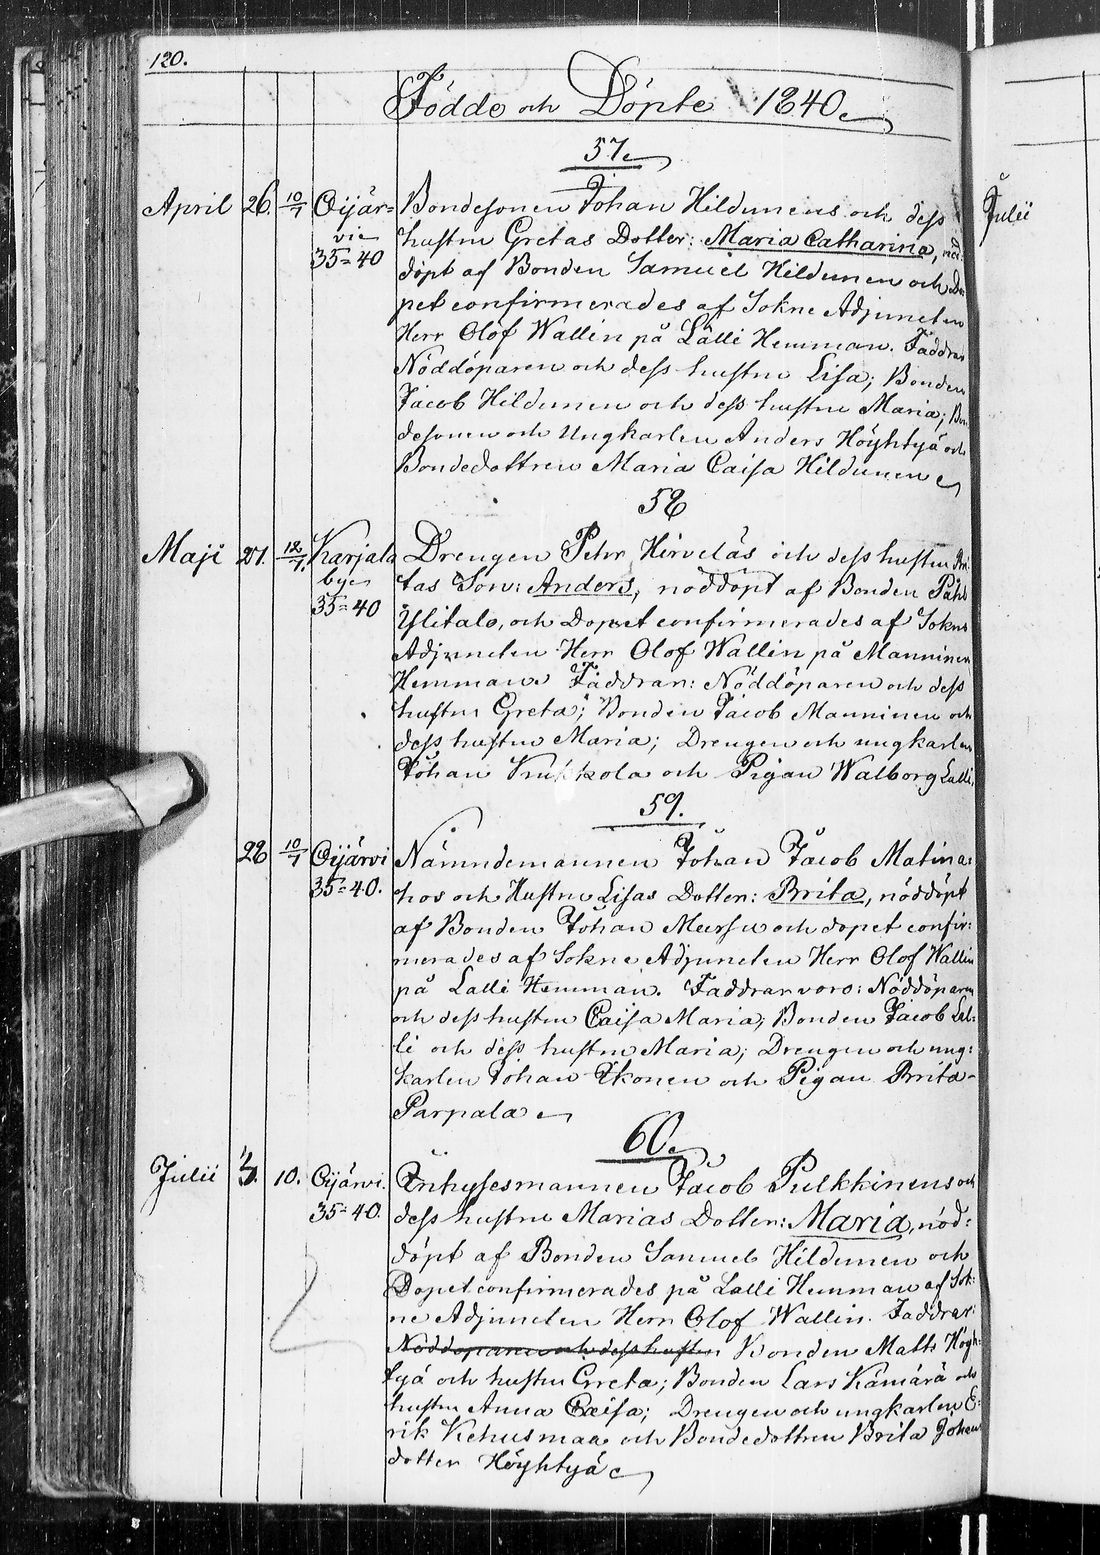 120.
Födde och Döpte 1840.
57.
April 26 10/7 Oijär- Bondesonen Johan Hildunens och dess
vie hustru Gretas Dotter: Maria Catharina, nöd:
35=40 döpt af Bonden Samuel Hildunen och do-
pet confirmerades af Sokne Adjuncten
Herr Olof Wallin på Lalli Hemman. Faddrar
Nöddöparen och dess hustru Lisa; Bonden
Jacob Hildunen och dess hustru Maria; Bon
desonen och Ungkarlen Anders Höyhtyä och
Bondedottren Maria Caisa Hildunen
58
Maji 27. 12/7. Karjala Drengen Petter Hirvelås och dess hustru
bye tas Son: Anders, nöddöpt af Bonden Påhl
35=40 Ylitalo, och Dopet confirmerades af Sokne
Adjuncten Herr Olof Wallin på Manninen
Hemman. Faddrar: Nöddöparen och dess
hustru Greta; Bonden Jacob Manninen och
dess hustru Maria; Drengen och ungkarlen
Johan Krukkola och Pigan Walborg Lalli,
59.
28 10/7 Oijärvi Nämndemannen Johan Jacob Matina:
35=40. hos och Hustru Lisas Dotter: Brita, nöddöpt
af Bonden Johan Meursu och dopet confir:
merades af Sokne Adjuncten Herr Olof Wallin
på Lalli Hemman. Faddrar voro: Nöddöparen
och dess hustru Caisa Maria; Bonden Jacob Lal:
li och dess hustru Maria; Drengen och ung:
karlen Johan Ikonen och Pigan Brita
Parpala
60.
Julii 3. 10. Oijärvi. Enhysesmannen Jacob Pulkkinens och
35=40. dess hustru Marias Dotter: Maria, nöd:
döpt af Bonden Samuel Hildunen och
Dopet confirmerades på Lalli Hemman af Sok:
ne Adjuncten Herr Olof Wallin. Faddrar:
Nöddöparen och dess hustru Bonden Matts Höyh:
tyä och hustru Greta; Bonden Lars Kämärä och
hustru Anna Caisa; Drengen och ungkarlen E:
rik Kehusmaa och Bondedottren Brita Johans
dotter Höyhtyä
Julii